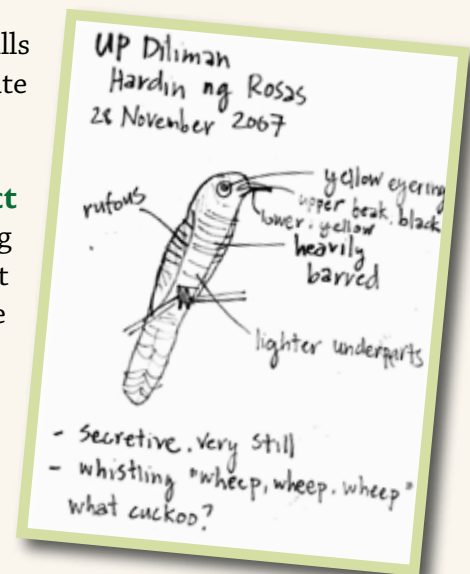 lls
te
ct
g
t
e
UP Diliman
Hardin ng Rosas
28 November 2007
yellow eyering
upper beak. black
lower. yellow
rufous
heavily
barred
lighter underparts
- secretive. very still
- whistling "wheep, wheep. wheep"
what cuckoo?